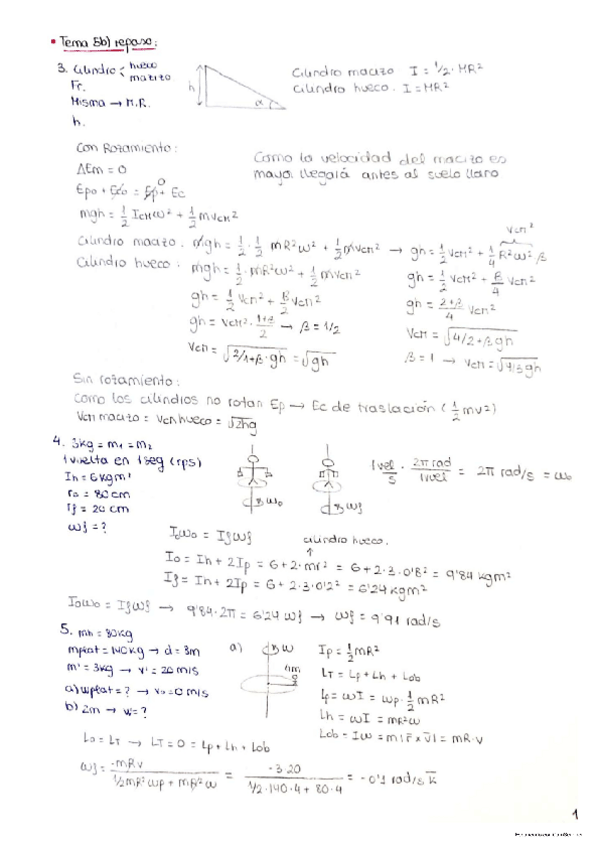 • Tema 5b) repaso:
3. Cilindro < hueco
macizo
Fr.
Misma → M.R.
h.
h
α
Cilindro macizo I = 1/2 · MR²
Cilindro hueco. I = MR²
Con Rozamiento:
ΔEm = 0
Epo + Eco = Ep + Ec
0
mgh = 1/2 Icm ω² + 1/2 m vcm²
Como la velocidad del macizo es
mayor llegará antes al suelo llano
Cilindro macizo. mgh = 1/2 · 1/2 mR²ω² + 1/2 m vcm² → gh = 1/2 vcm² + 1/4 R²ω² β
vcm²
Cilindro hueco: mgh = 1/2 · mR²ω² + 1/2 m vcm²
gh = 1/2 vcm² + β/4 vcm²
gh = 1/2 vcm² + β/2 vcm²
gh = 2+β/4 vcm²
gh = vcm² · 1+β/2 → β = 1/2
vcm = √4/2+β gh
vcm = √2/1+β · gh = √gh
β = 1 → vcm = √4/3 gh
Sin rozamiento:
como los cilindros no rotan Ep → Ec de traslación (1/2 mv²)
vcm macizo = vcm hueco = √2hg
4. 3kg = m₁ = m₂
1 vuelta en 1 seg (rps)
Ih = 6 kgm²
ro = 80 cm
rf = 20 cm
ωf = ?
ωo
ωf
1 vel/s · 2π rad/1 vel = 2π rad/s = ωo
Ioωo = Ifωf
cilindro hueco.
Io = Ih + 2Ip = 6 + 2 · mr² = 6 + 2 · 3 · 0'8² = 9'84 kgm²
If = Ih + 2Ip = 6 + 2 · 3 · 0'2² = 6'24 kgm²
Ioωo = Ifωf → 9'84 · 2π = 6'24 ωf → ωf = 9'91 rad/s
5. mh = 80kg
mplat = 140kg → d = 3m
m' = 3kg → v' = 20 m/s
a) ωplat = ? → vo = 0 m/s
b) 2m → v = ?
a)
ω
Ip = 1/2 mR²
LT = Lp + Lh + Lob
Lp = ωI = ωp · 1/2 mR²
Lh = ωI = mR²ω
Lob = Iω = m|r̄ x v̄| = mR·v
Lo = LT → LT = 0 = Lp + Lh + Lob
ωf = -mRv / 1/2mR²ωp + mR²ω = -3·20 / 1/2·140·4 + 80·4 = -0'1 rad/s k̄
1